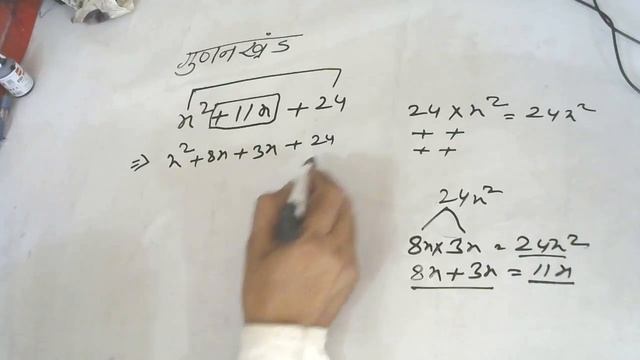 गुणनखंड
x² + 11x + 24
⇒ x² + 8x + 3x + 24
24 × x² = 24x²
+ +
+ +
24x²
8x × 3x = 24x²
8x + 3x = 11x